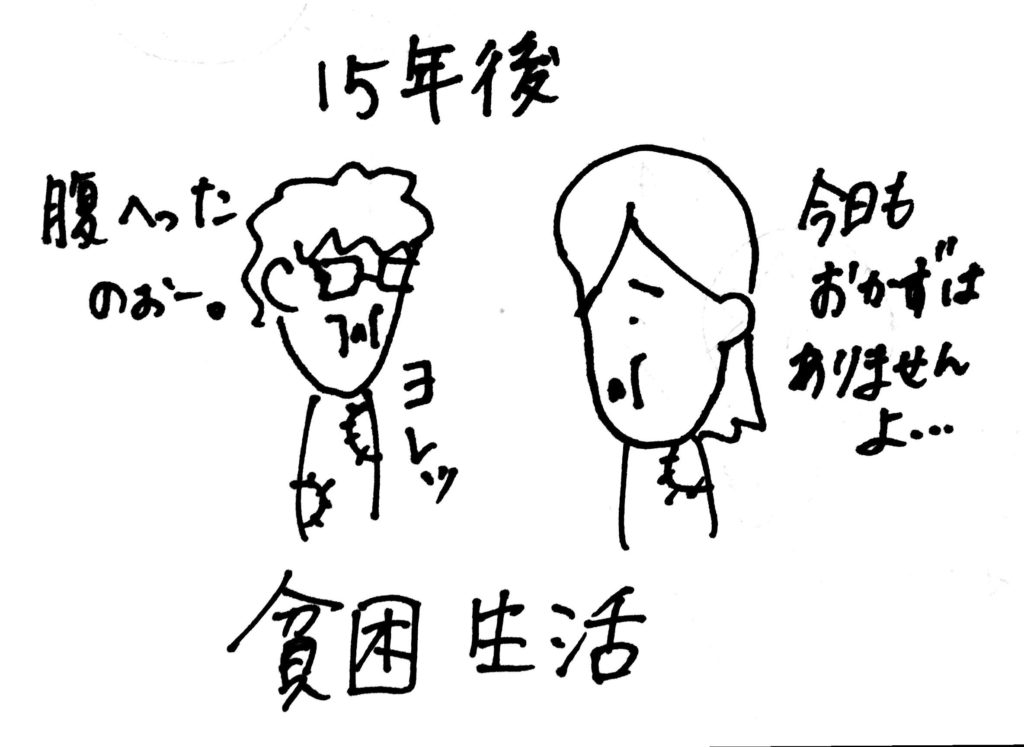 15年後
腹へった
のぉー。
ヨレッ
今日も
おかずは
ありません
よ…
貧困生活